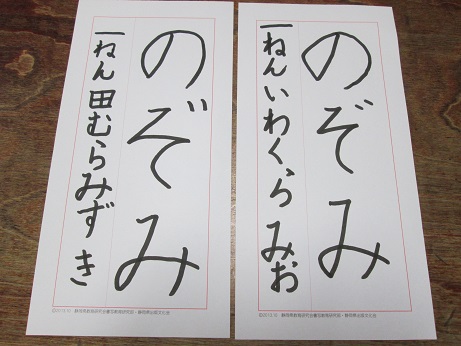 のぞみ
一ねん いわくら みお
のぞみ
一ねん 田むらみずき